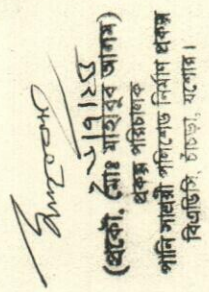 (প্রকৌ. মোঃ মাহাবুব আলম)
প্রকল্প পরিচালক
পানি সাশ্রয়ী পলিশেড নির্মাণ প্রকল্প
বিএডিসি, চাঁচড়া, যশোর।